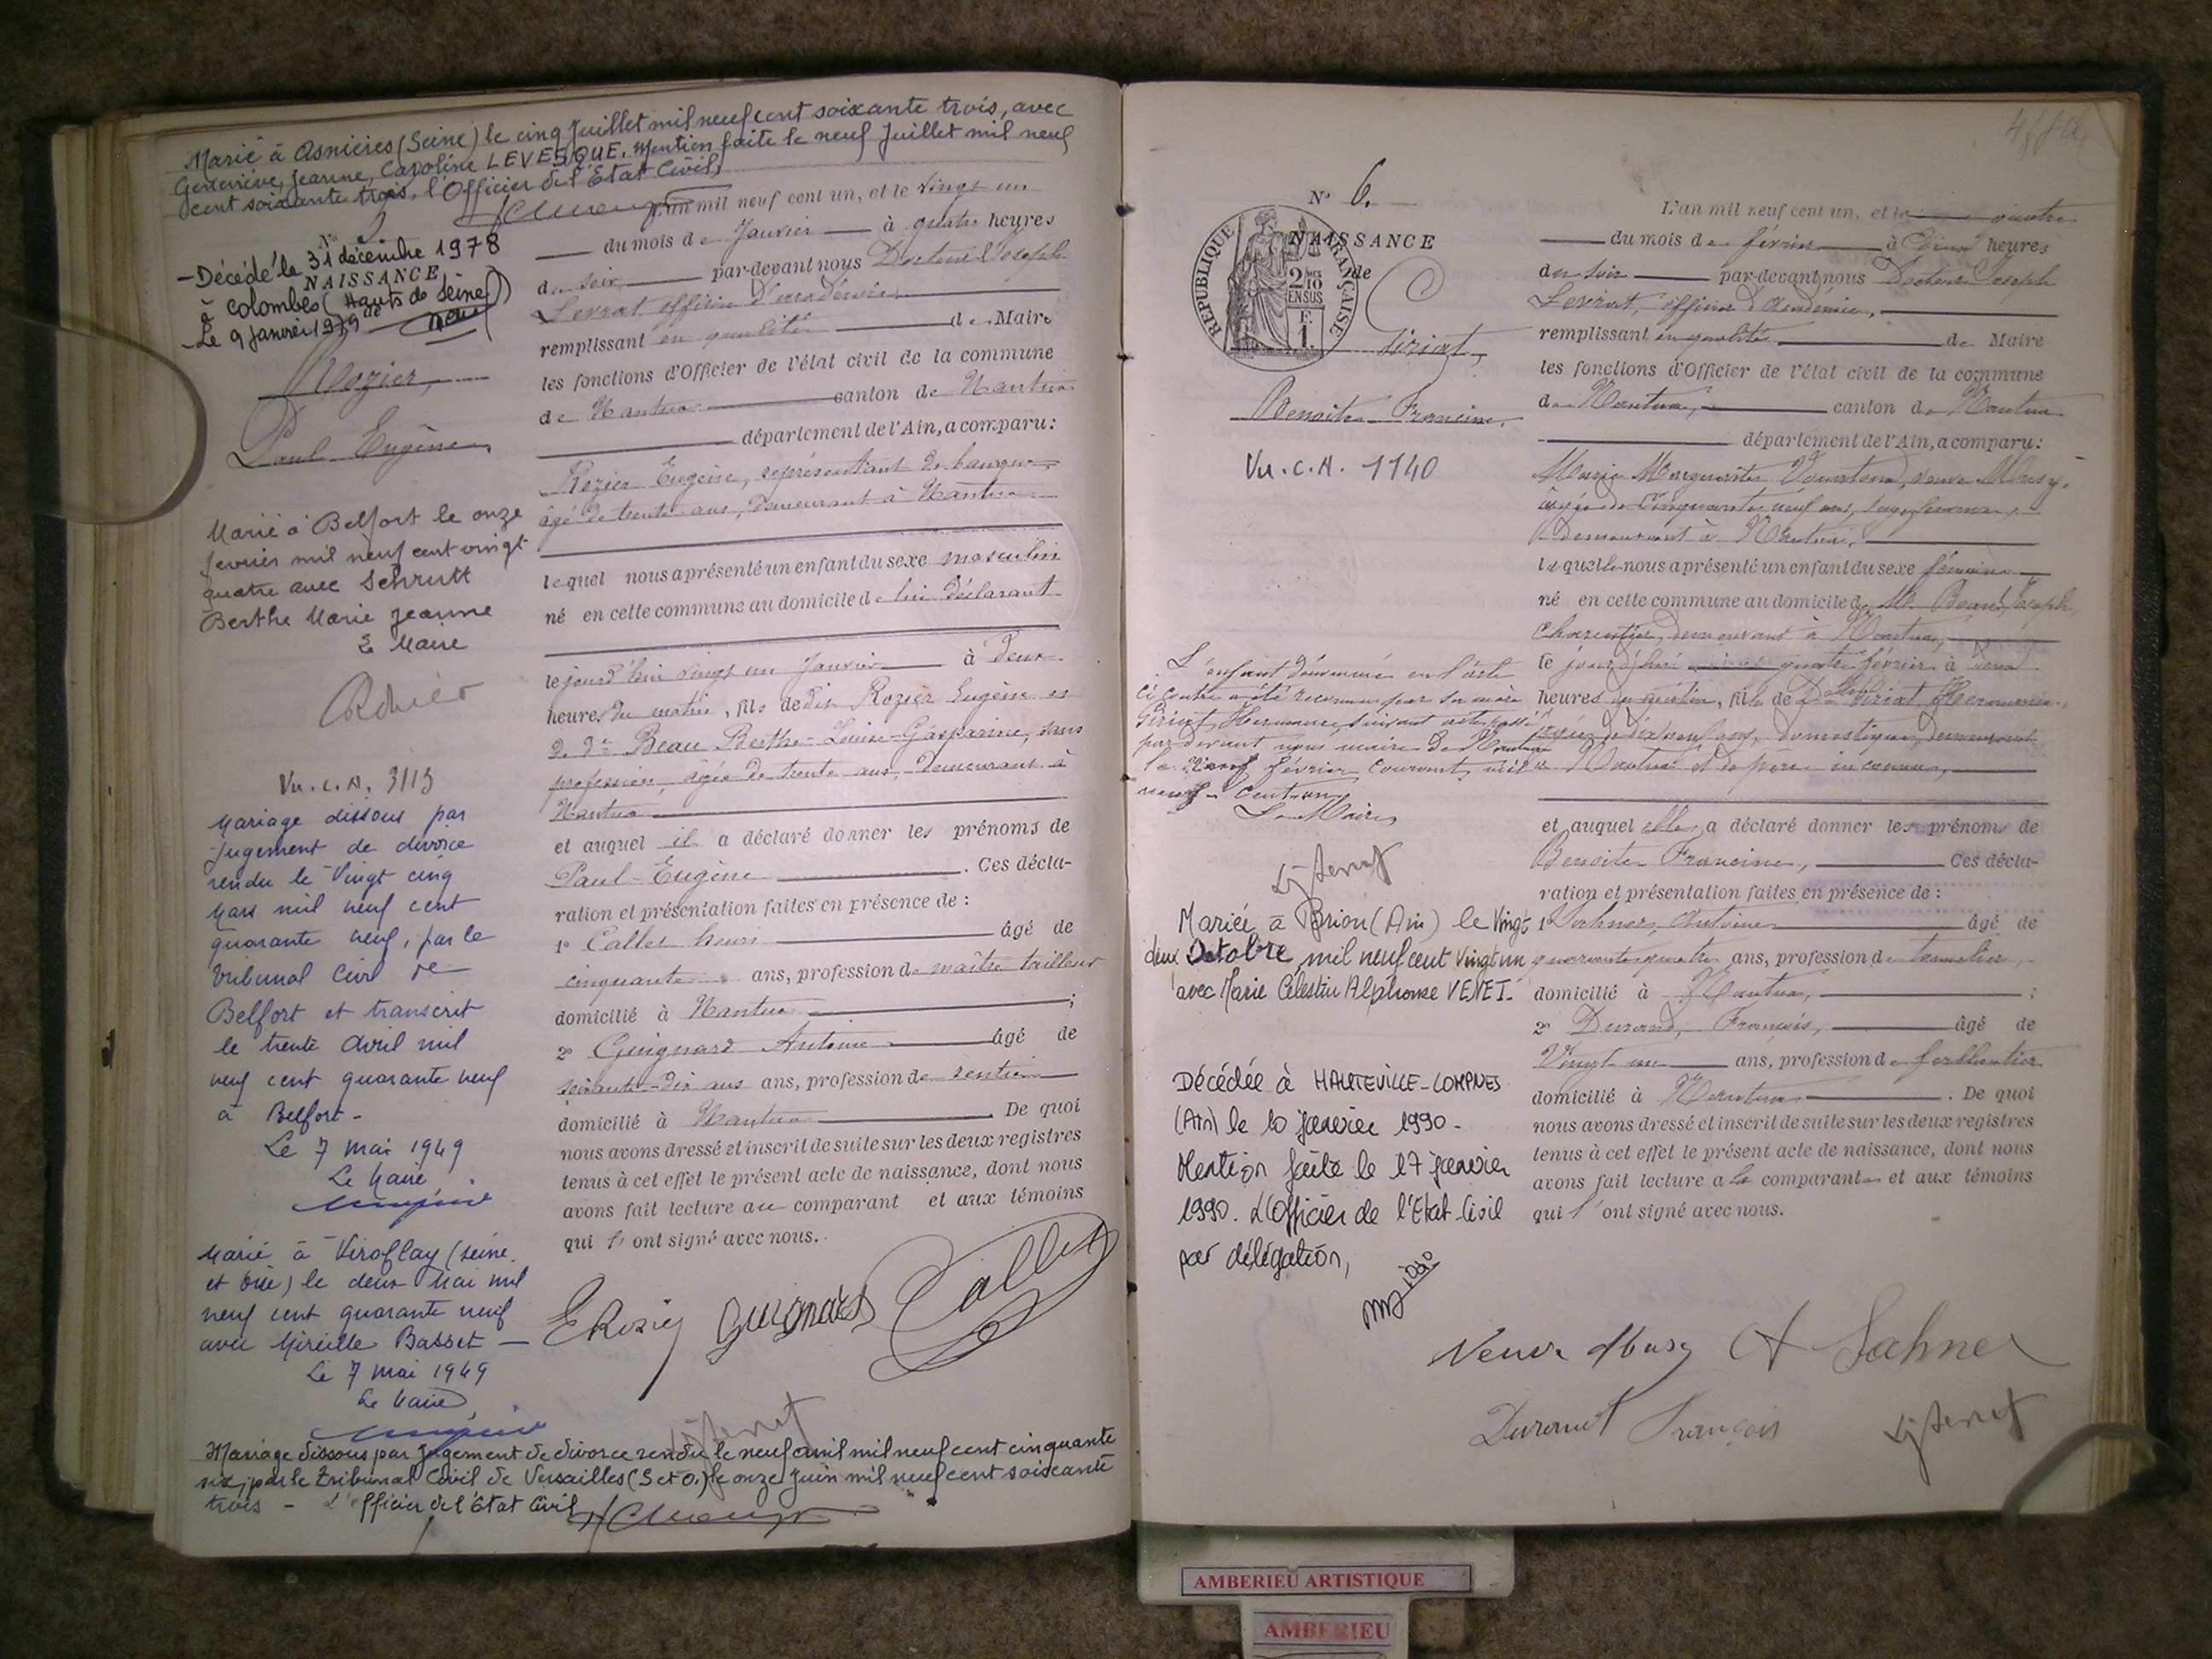 Marié à Asnières (Seine) le cinq Juillet mil neuf cent soixante trois, avec
Geneviève, Jeanne, Caroline LEVESQUE. Mention faite le neuf Juillet mil neuf
cent soixante trois, l'Officier de l'Etat Civil,
N°
- Décédé le 31 décembre 1978
NAISSANCE
à Colombes (Hauts de Seine)
de
- Le 9 janvier 1979
Rozier,
Paul Eugène
Marié à Belfort le onze
fevrier mil neuf cent vingt
quatre avec Schrutt
Berthe Marie Jeanne
Le Maire
Vu. C. N. 3113
Mariage dissous par
jugement de divorce
rendu le Vingt cinq
Mars mil neuf cent
quarante neuf, par le
Tribunal Civil de
Belfort et transcrit
le trente Avril mil
neuf cent quarante neuf
à Belfort -
Le 7 mai 1949
Le Maire
Marié à Viroflay (Seine
et Oise) le deux Mai mil
neuf cent quarante neuf
avec Mireille Basset -
Le 7 mai 1949
Le Maire,
Mariage dissous par jugement de divorce rendu le neuf avril mil neuf cent cinquante
six, par le Tribunal Civil de Versailles (S et O.) le onze Juin mil neuf cent soixante
trois - L'Officier de l'Etat Civil,
L'an mil neuf cent un, et le vingt un
du mois de Janvier à quatre heures
du soir par-devant nous Docteur Joseph
Levrat officier d'académie
remplissant en qualité de Maire
les fonctions d'Officier de l'état civil de la commune
de Nantua canton de Nantua
département de l'Ain, a comparu:
Rozier Eugène, représentant de banque,
âgé de trente ans, demeurant à Nantua
lequel nous a présenté un enfant du sexe masculin
né en cette commune au domicile de lui déclarant
le jourd'hui vingt un Janvier à deux
heures du matin, fils de dit Rozier Eugène et
de De Beau Berthe-Louise-Gasparine, sans
profession, âgée de trente ans, demeurant à
Nantua
et auquel il a déclaré donner les prénoms de
Paul-Eugène. Ces décla-
ration et présentation faites en présence de :
1° Callet henri âgé de
cinquante ans, profession de maître tailleur
domicilié à Nantua ;
2° Guignard Antoine âgé de
soixante-dix ans ans, profession de rentier
domicilié à Nantua. De quoi
nous avons dressé et inscrit de suite sur les deux registres
tenus à cet effet le présent acte de naissance, dont nous
avons fait lecture au comparant et aux témoins
qui l' ont signé avec nous.
ERozier Guignard Callet
N° 6.
NAISSANCE
de
RÉPUBLIQUE FRANÇAISE
2/10
EN SUS
F.
1.
Benoite Francine.
Vu. C. N. 1140
L'enfant dénommé en l'acte
ci contre a été reconnu par sa mère
Hermance, suivant acte passé
par devant nous maire de Nantua
le février courant, mil
neuf cent un
Le Maire,
Mariée à Brion (Ain) le Vingt
deux Octobre, mil neuf cent Vingt un
avec Marie Célestin Alphonse VENET.
Décédée à HAUTEVILLE-LOMPNES
(Ain) le 10 janvier 1990 -
Mention faite le 17 janvier
1990. L'Officier de l'Etat-Civil
par délégation,
L'an mil neuf cent un, et le quatre
du mois de février à cinq heures
du soir par-devant nous Docteur Joseph
Levrat, officier d'Académie,
remplissant en qualité de Maire
les fonctions d'Officier de l'état civil de la commune
de Nantua, canton de Nantua
département de l'Ain, a comparu:
Marie Marguerite veuve Musy,
âgée de cinquante neuf ans, sage femme,
demeurant à Nantua,
laquelle nous a présenté un enfant du sexe féminin
né en cette commune au domicile de M. Beau Joseph,
demeurant à Nantua,
le jourd'hui quatre février à deux
heures du matin, fille de Hermance,
âgée de dix neuf ans, domestique, demeurant
à Nantua et de père inconnu,
et auquel elle a déclaré donner les prénoms de
Benoite Francine, Ces décla-
ration et présentation faites en présence de :
1° Sahner Antoine âgé de
quarante quatre ans, profession de tonnelier,
domicilié à Nantua, ;
2° Durand, François, âgé de
Vingt un ans, profession de ferblantier
domicilié à Nantua. De quoi
nous avons dressé et inscrit de suite sur les deux registres
tenus à cet effet le présent acte de naissance, dont nous
avons fait lecture a la comparante et aux témoins
qui l' ont signé avec nous.
Veuve Musy A Sahner
Durand François
AMBERIEU ARTISTIQUE
AMBERIEU